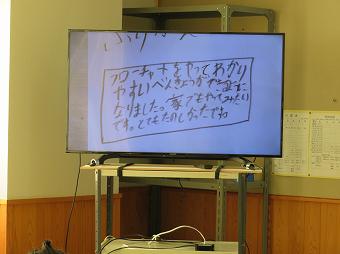 ふりかえ
フローチャートをやってわかり
やすいべんきょうができるように
なりました。家でもやってみたい
です。とてもたのしかったでね